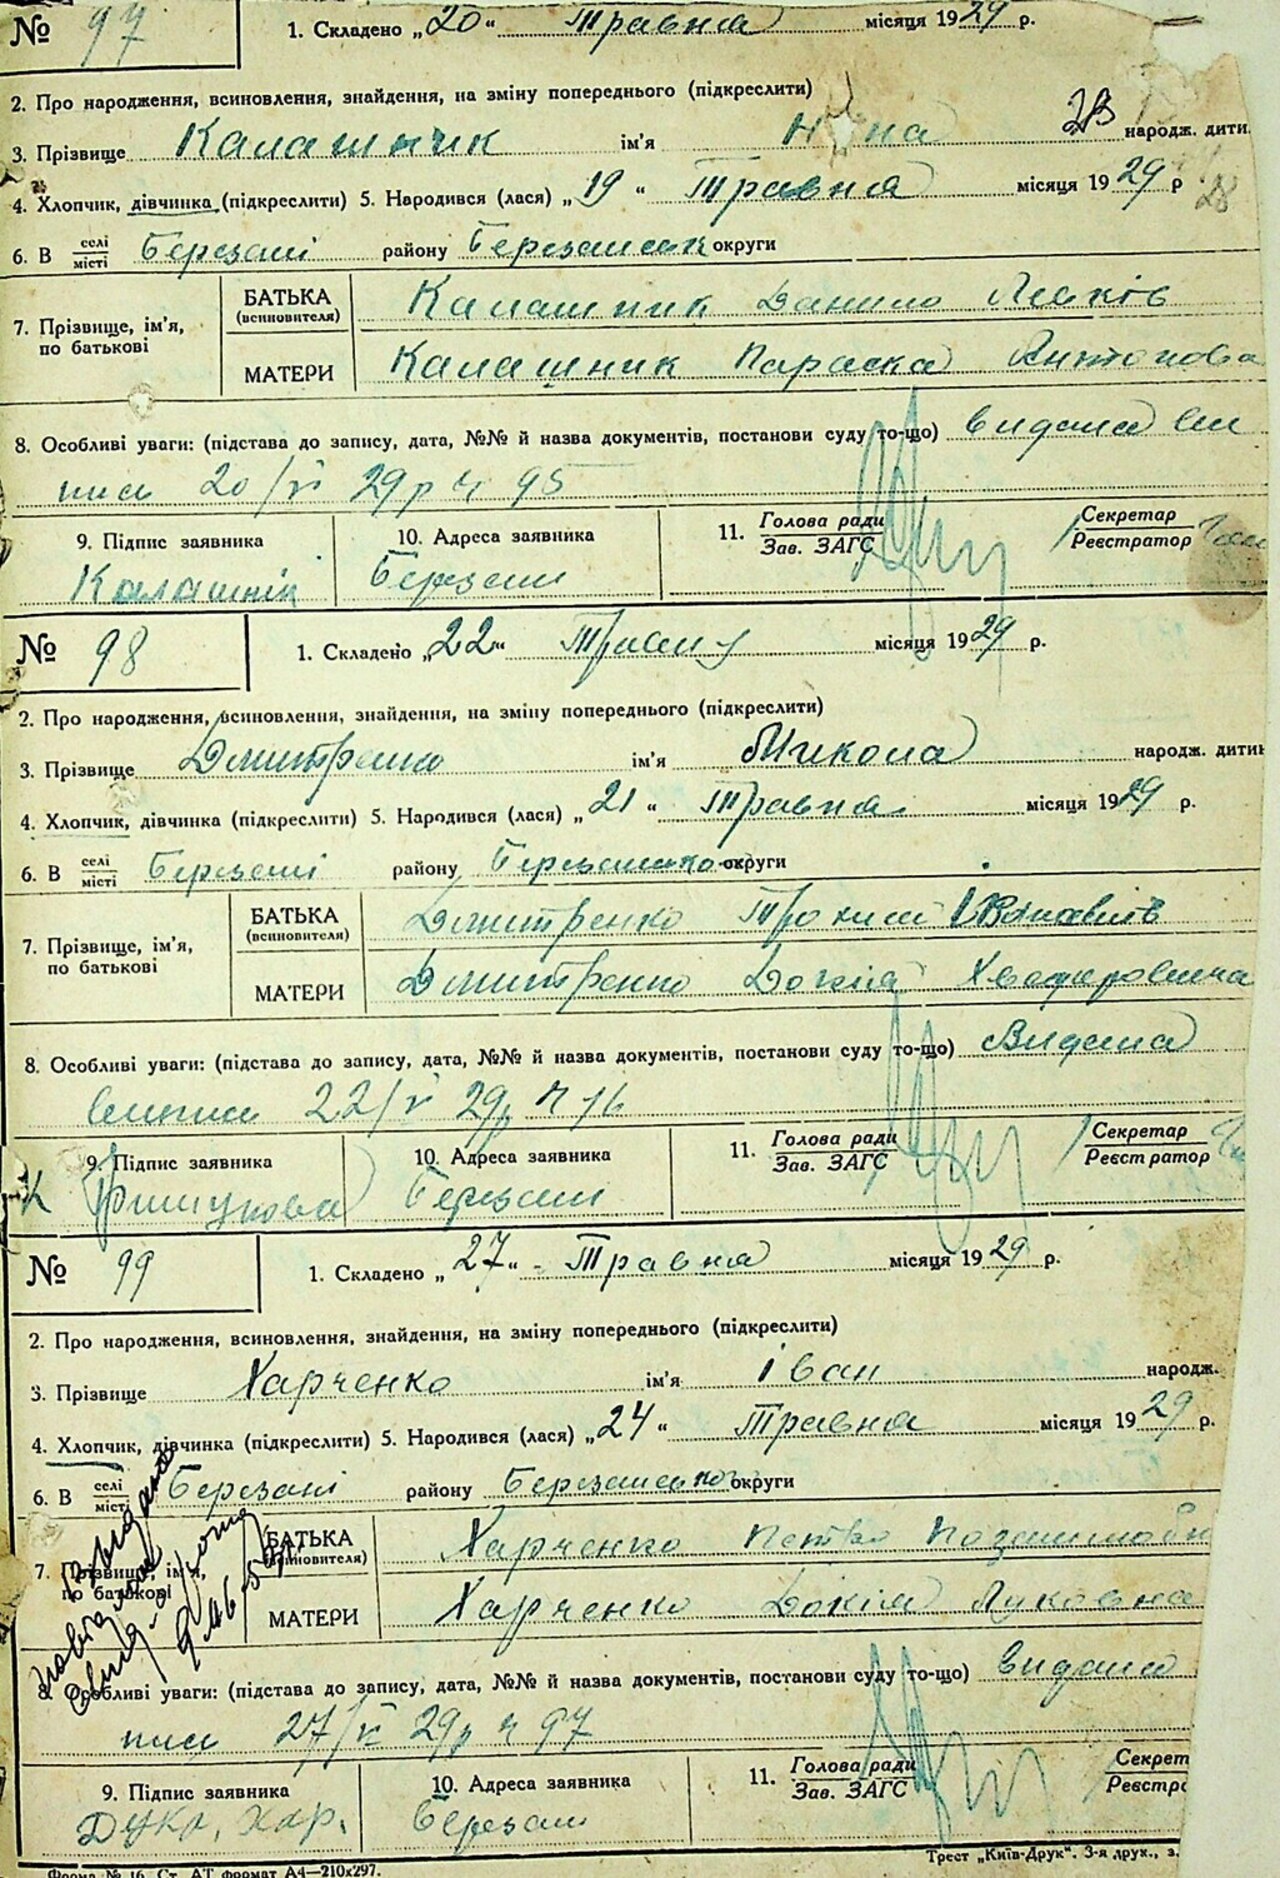 № 97 1. Складено „20“ Травня місяця 1929 р.
2. Про народження, всиновлення, знайдення, на зміну попереднього (підкреслити)
3. Прізвище Калашник ім'я народж. дити
4. Хлопчик, дівчинка (підкреслити) 5. Народився (лася) „19“ Травня місяця 1929 р
6. В селі місті Березані району Березанськ округи
7. Прізвище, ім'я, по батькові
БАТЬКА (всиновителя) Калашник Данило
МАТЕРИ Калашник Параска Антонова
8. Особливі уваги: (підстава до запису, дата, №№ й назва документів, постанови суду то-що) видана
20/V 29р ч 95
9. Підпис заявника 10. Адреса заявника 11. Голова ради Зав. ЗАГС Секретар Реєстратор
Калашнік Березань
№ 98 1. Складено „22“ місяця 1929 р.
2. Про народження, всиновлення, знайдення, на зміну попереднього (підкреслити)
3. Прізвище Дмитренко ім'я Микола народж. дитин
4. Хлопчик, дівчинка (підкреслити) 5. Народився (лася) „21“ Травня місяця 1929 р.
6. В селі місті Березані району Березансько округи
7. Прізвище, ім'я, по батькові
БАТЬКА (всиновителя) Дмитренко Трохим
МАТЕРИ Дмитренко Докія
8. Особливі уваги: (підстава до запису, дата, №№ й назва документів, постанови суду то-що) Видана
22/V 29р ч
9. Підпис заявника 10. Адреса заявника 11. Голова ради Зав. ЗАГС Секретар Реєстратор
Березань
№ 99 1. Складено „27“ Травня місяця 1929 р.
2. Про народження, всиновлення, знайдення, на зміну попереднього (підкреслити)
3. Прізвище Харченко ім'я Іван народж.
4. Хлопчик, дівчинка (підкреслити) 5. Народився (лася) „24“ Травня місяця 1929 р.
6. В селі місті Березані району Березансько округи
7. Прізвище, ім'я, по батькові
БАТЬКА (всиновителя) Харченко Петро
МАТЕРИ Харченко Докія Луковна
8. Особливі уваги: (підстава до запису, дата, №№ й назва документів, постанови суду то-що) видана
27/V 29р ч 97
9. Підпис заявника 10. Адреса заявника 11. Голова ради Зав. ЗАГС Секрет Реєстра
Хар. Березань
Форма № 16. Ст. АТ формат А4—210х297. Трест „Київ-Друк“. 3-я друк., з.